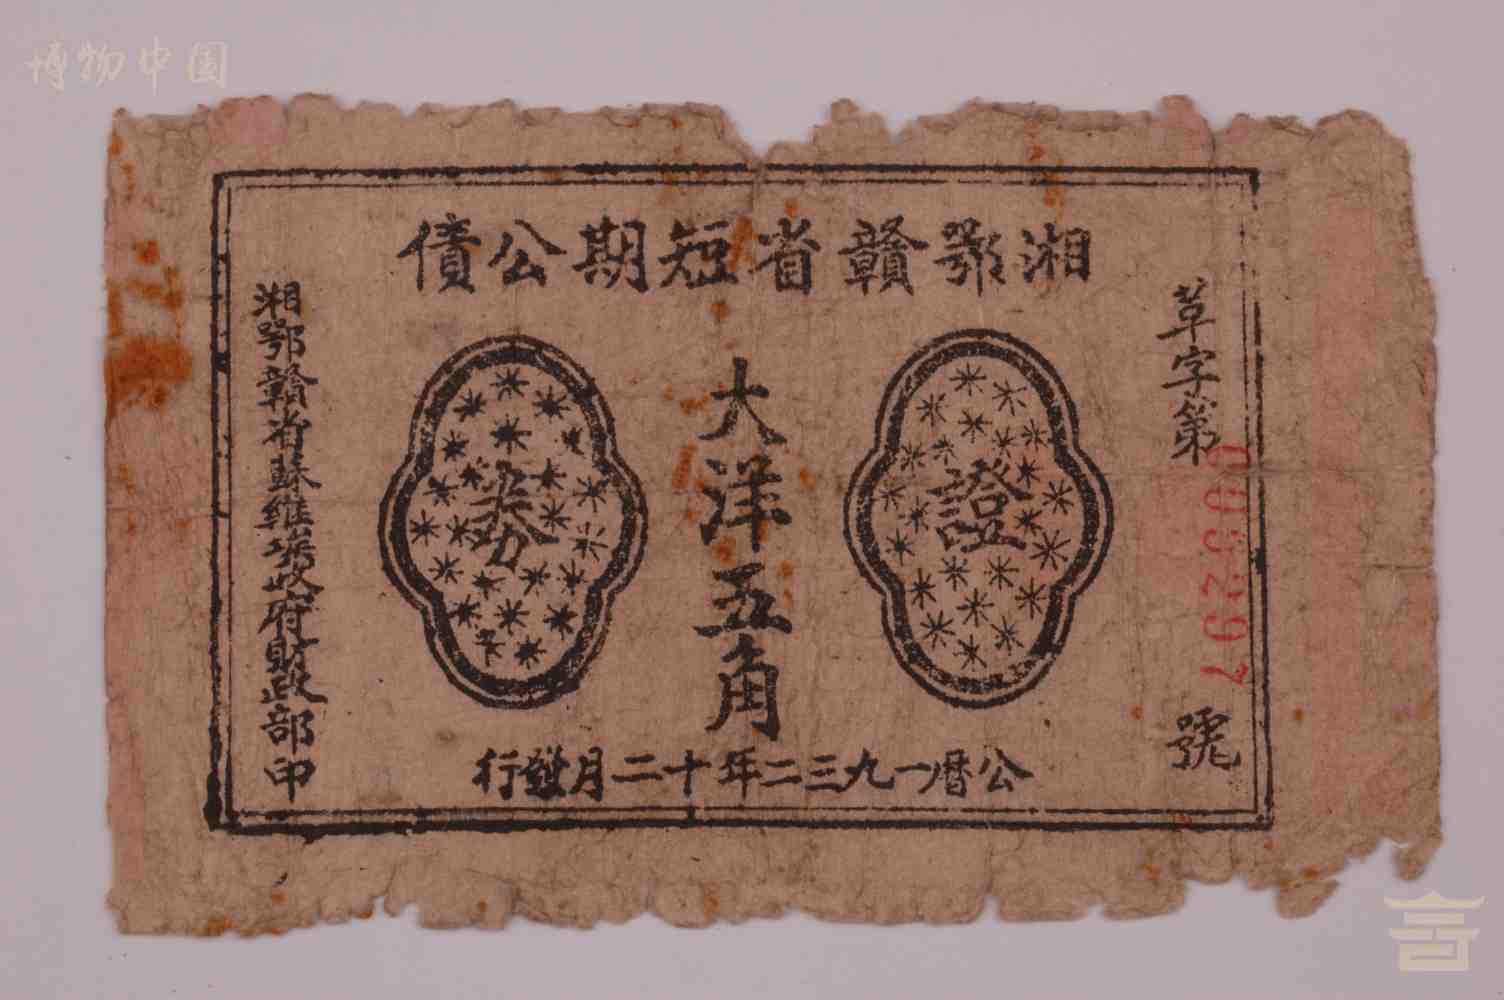 博物中国
湘鄂贛省短期公債
草字第
0035297
號
證
大洋五角
券
湘鄂贛省蘇維埃政府財政部印
公曆一九三二年十二月發行